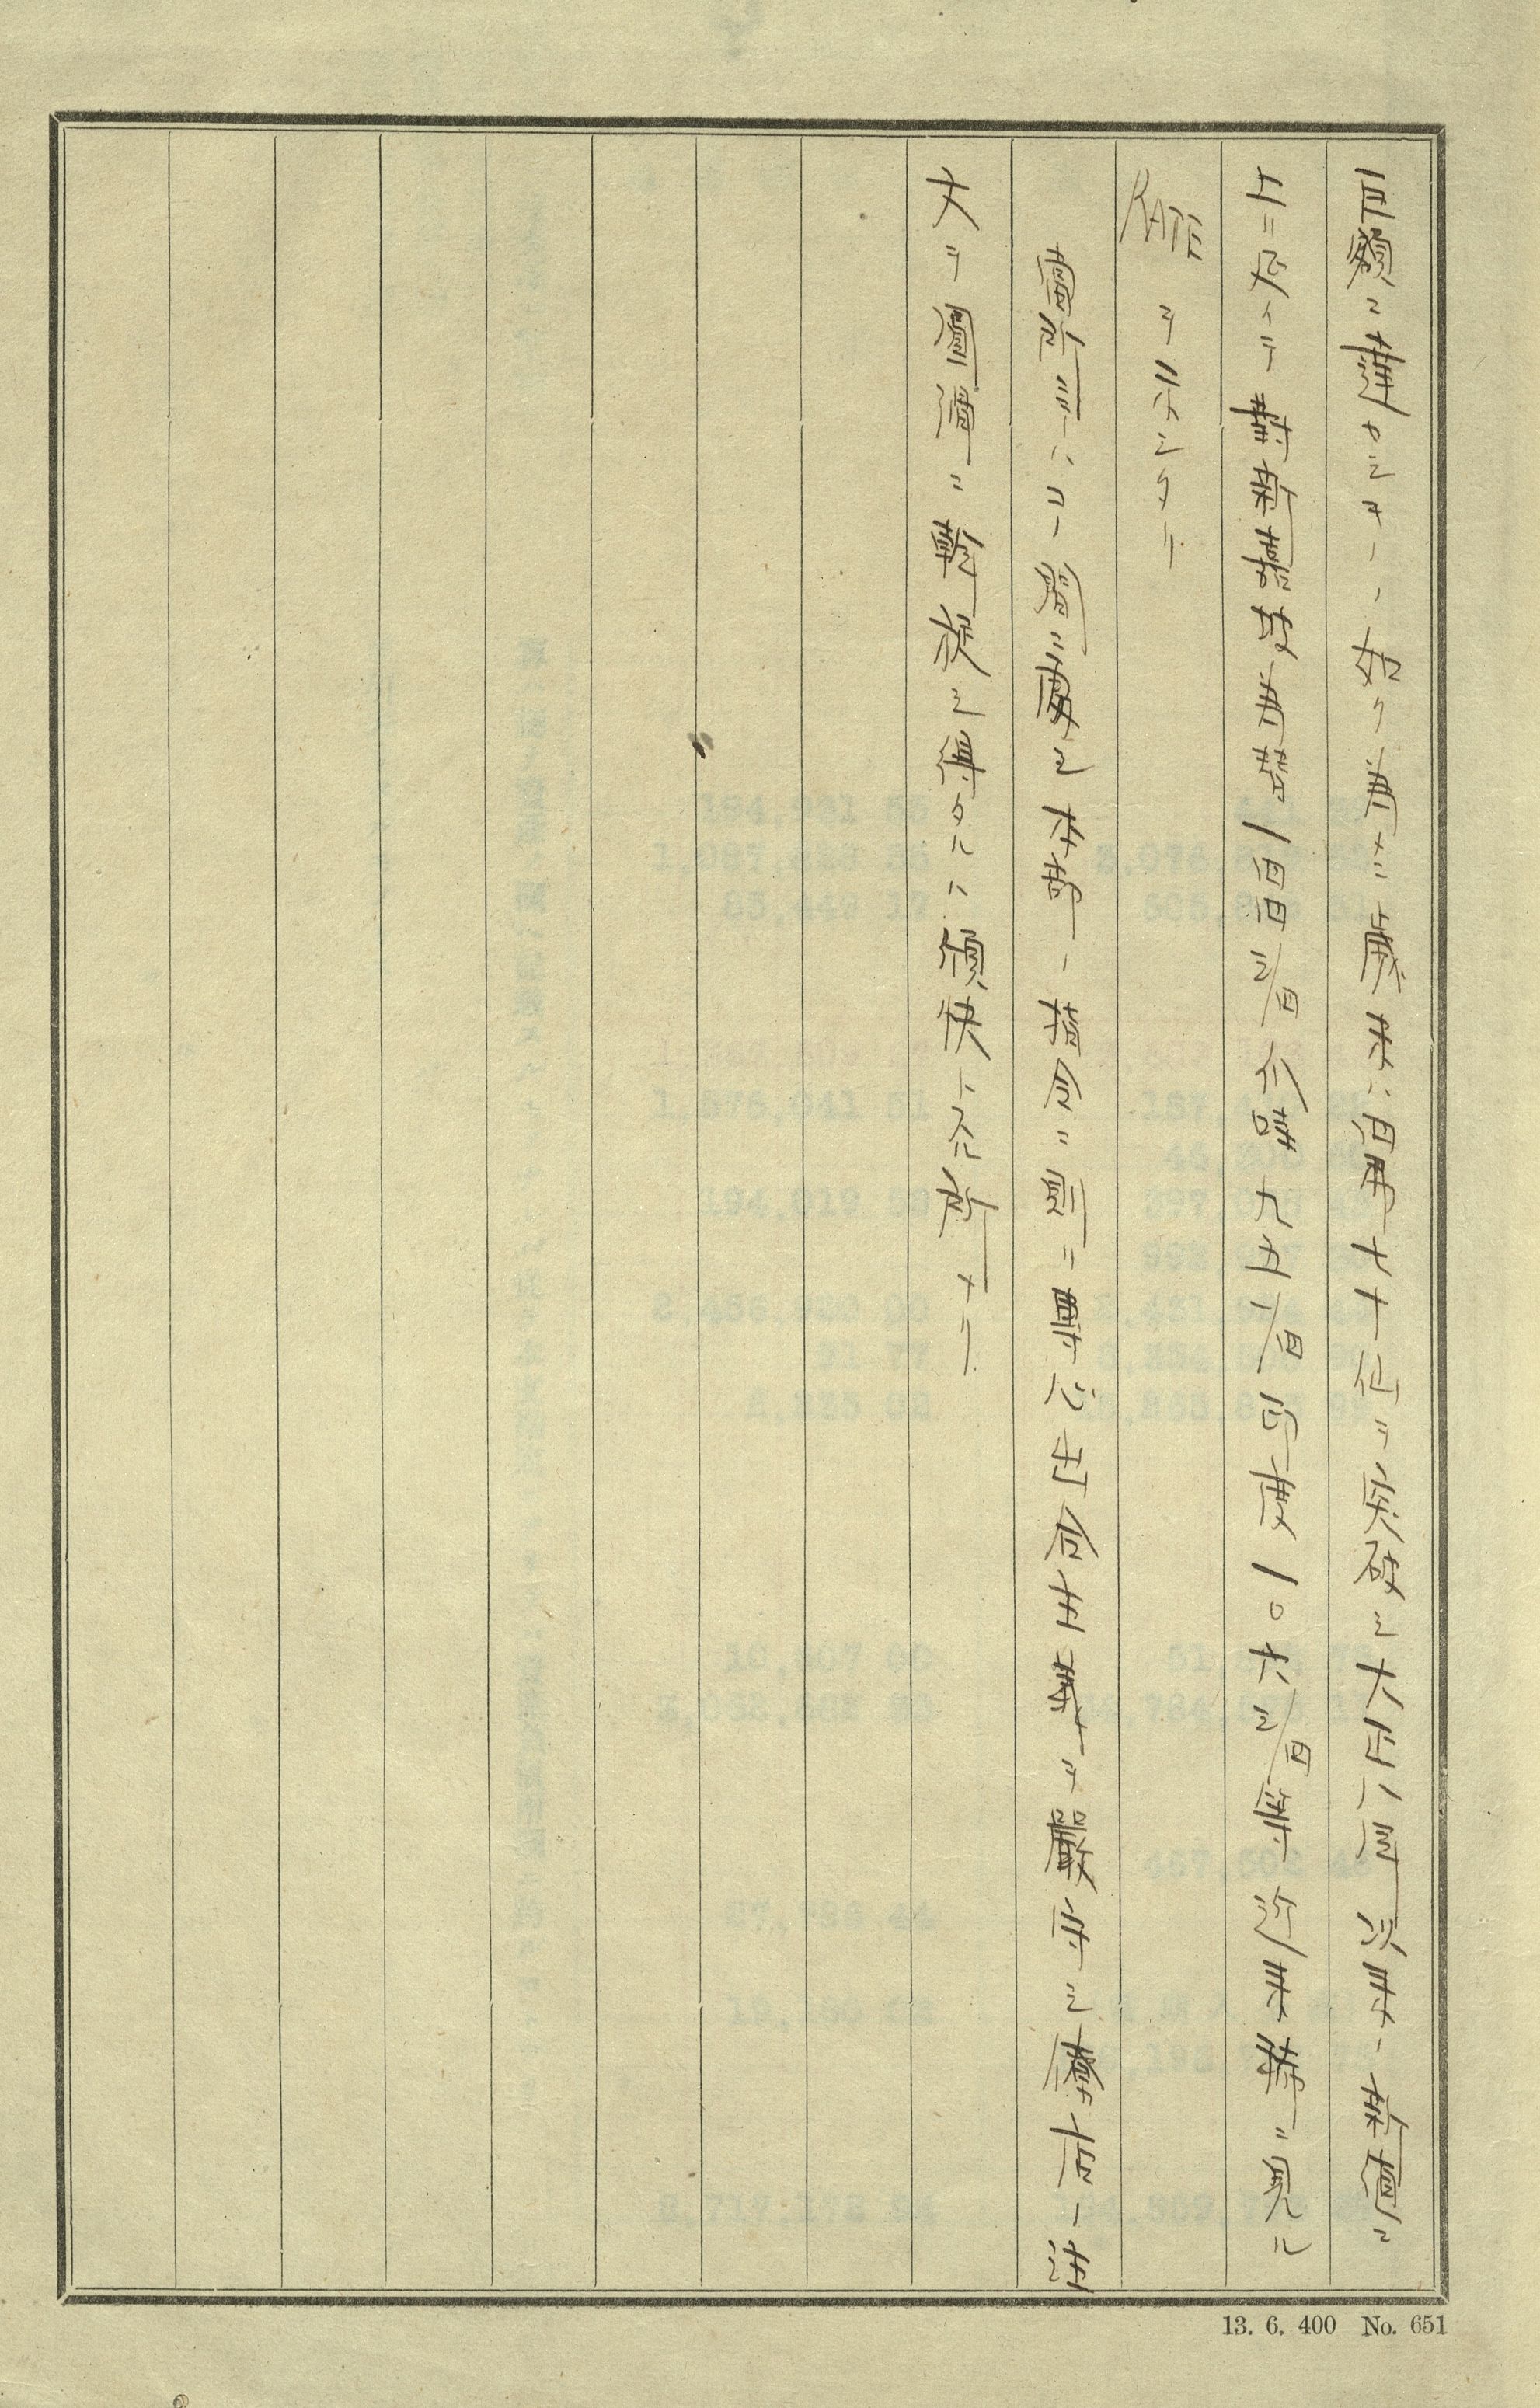 巨額ニ達セシモノノ如ク為メニ歳末ハ伯弗七十仙ヲ突破シ大正八年以来ノ新値ニ
上ニ及ヘテ對新嘉坡為替一四四三/四 仆嗹 九五一/四 印度 一〇六三/四等 近来稀ニ見ル
RATE ヲ示シタリ
當所ニテハコノ間ニ處シ本部ノ指令ニ則ニ専心出合出来ヲ嚴守シ僚店ノ注
文ヲ圓滑ニ斡旋シ得タルハ頗快トスル所ナリ
13. 6. 400 No. 651